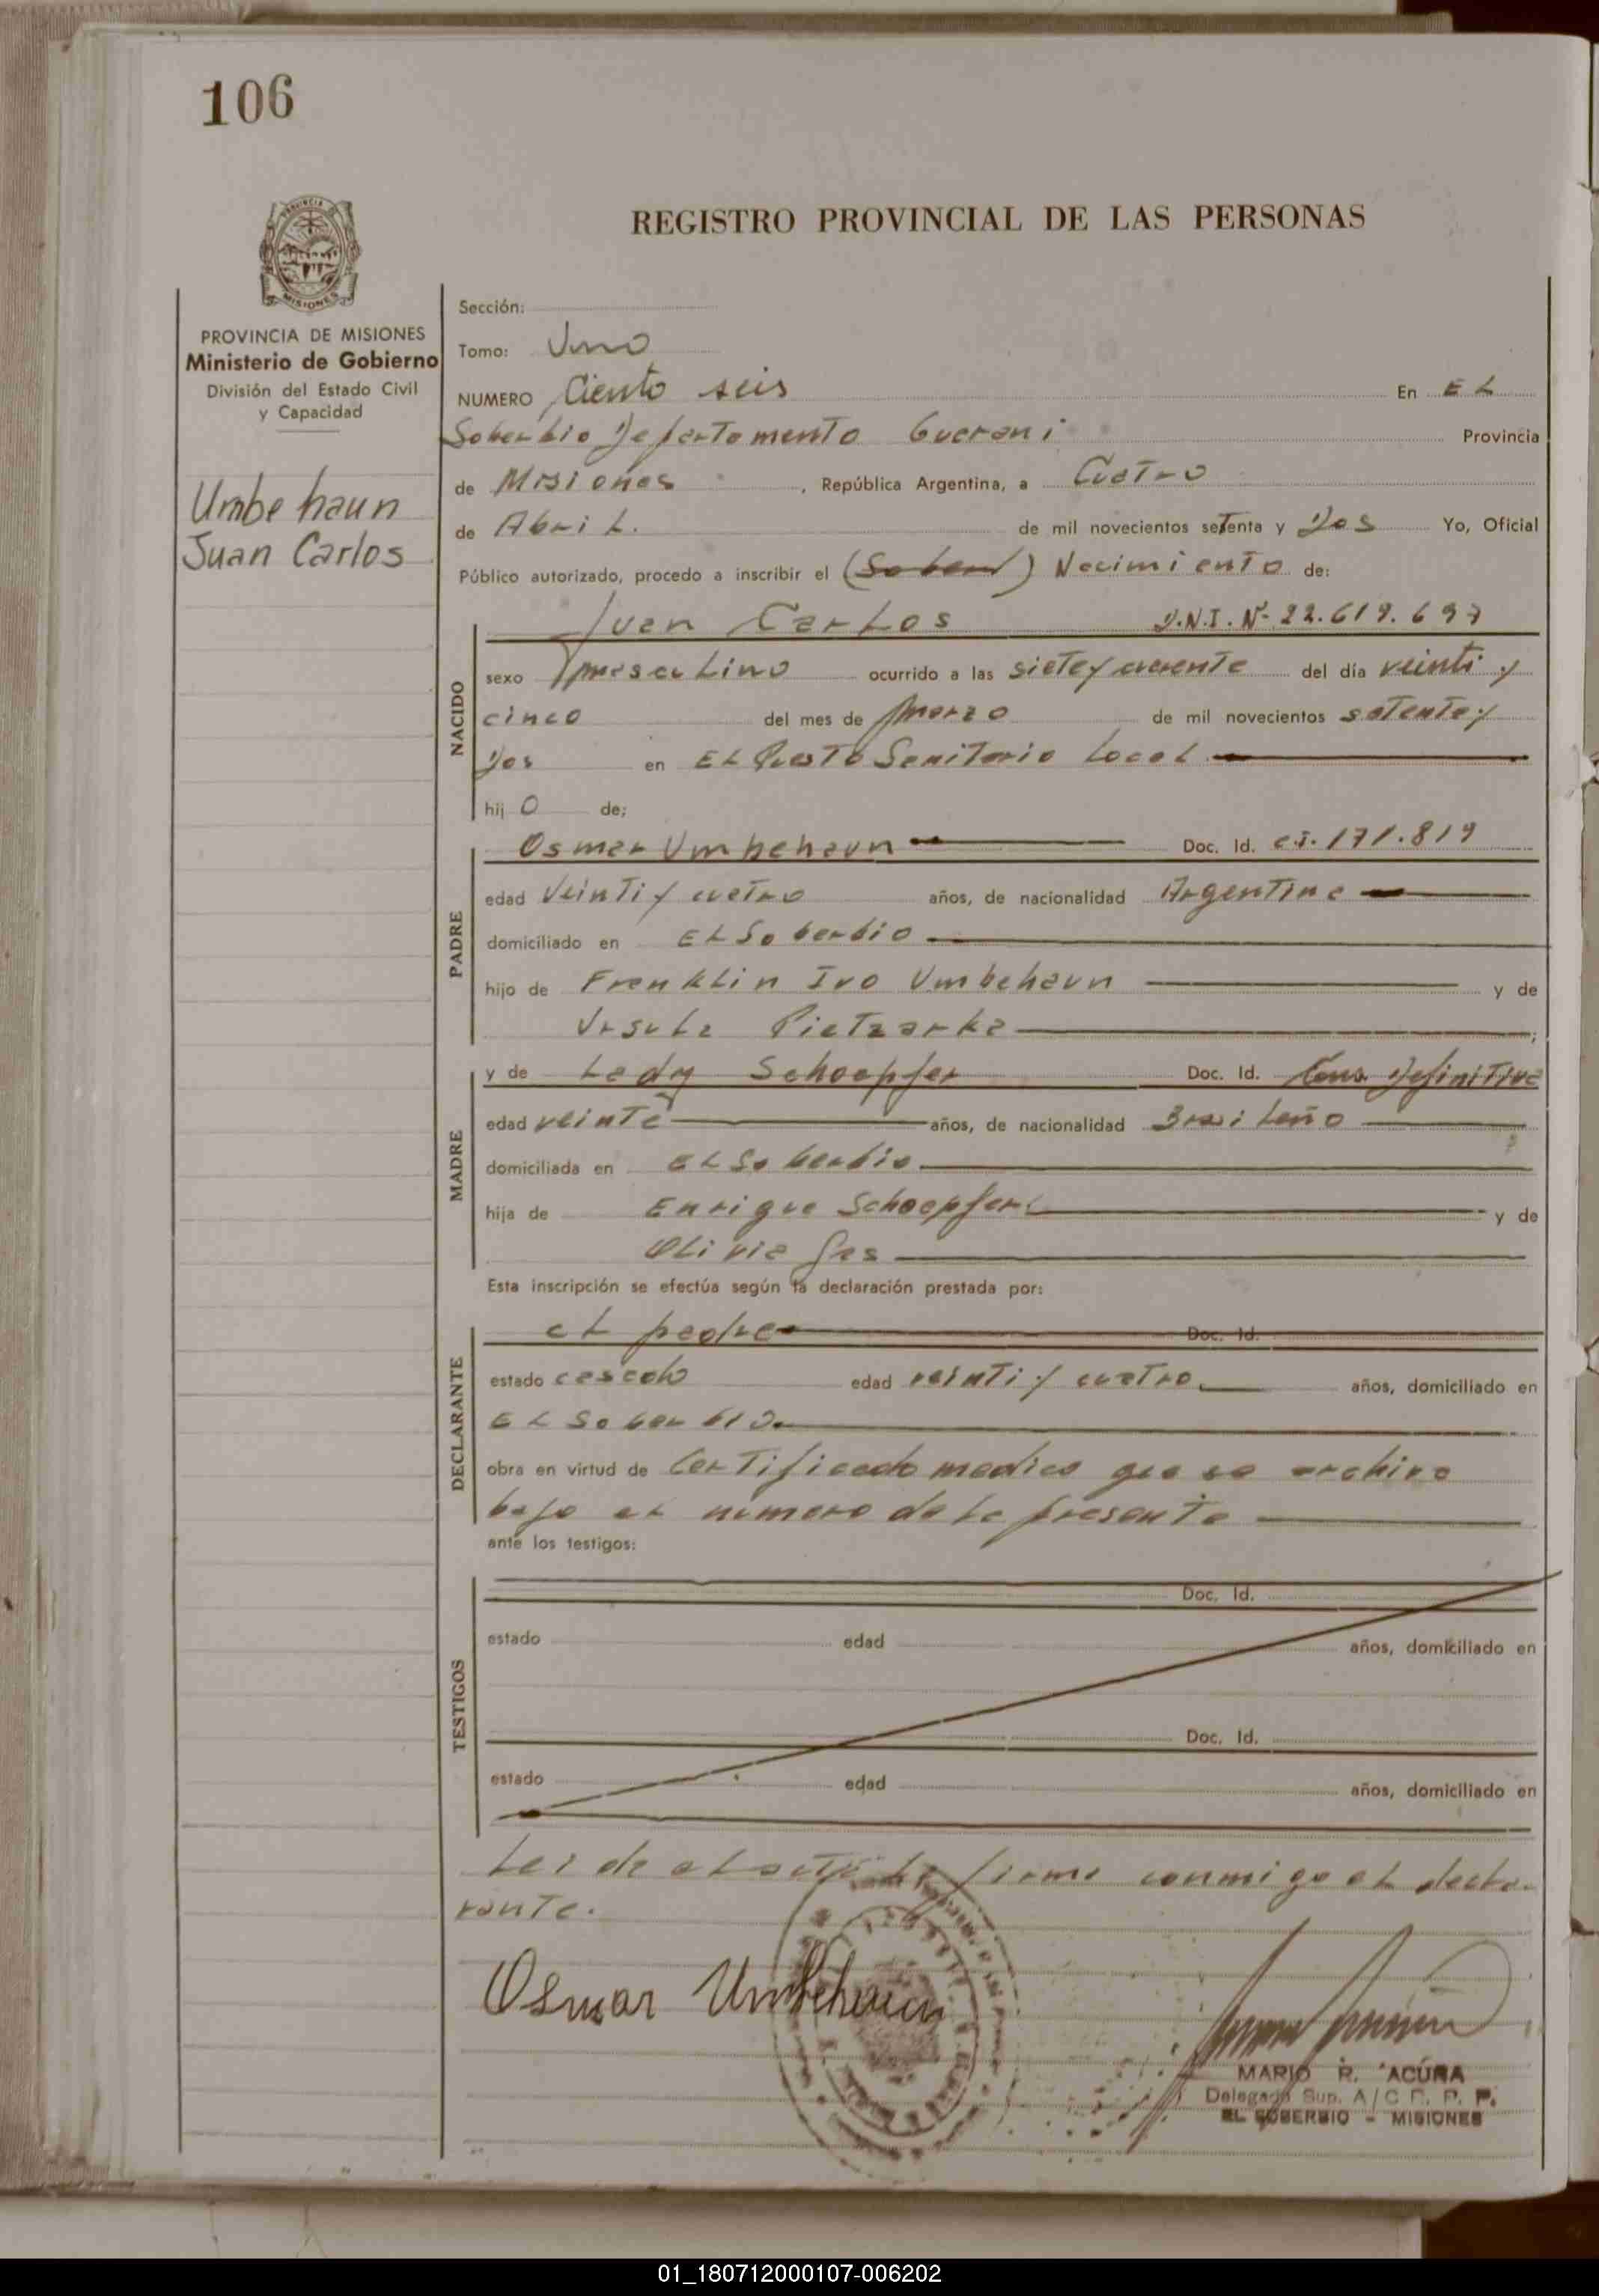 106
REGISTRO PROVINCIAL DE LAS PERSONAS
PROVINCIA
MISIONES
PROVINCIA DE MISIONES
Ministerio de Gobierno
División del Estado Civil
y Capacidad
Umbehaun
Juan Carlos
Sección:
Tomo: Uno
NUMERO Ciento seis En EL
Soberbio Departamento Guarani Provincia
de Misiones, República Argentina, a Cuatro
de Abril. de mil novecientos setenta y dos Yo, Oficial
Público autorizado, procedo a inscribir el () Nacimiento de:
Juan Carlos D.N.I. Nº 22.619.697
NACIDO
sexo masculino ocurrido a las siete y del día veinti y
cinco del mes de marzo de mil novecientos setenta y
dos en EL Puesto Sanitario Local
hijo de;
PADRE
Osmar Umbehaun Doc. Id. C.I. 171.819
edad veinti y cuatro años, de nacionalidad Argentina
domiciliado en EL Soberbio
hijo de Franklin Ivo Umbehaun y de
Ursula Pietzarka;
MADRE
y de Ledy Schoepfer Doc. Id. Definitiva
edad veinte años, de nacionalidad Brasileño
domiciliada en EL Soberbio
hija de Enrique Schoepfer y de
Olivia
Esta inscripción se efectúa según la declaración prestada por:
DECLARANTE
el padre Doc. Id.
estado casado edad veinti y cuatro años, domiciliado en
EL Soberbio
obra en virtud de Certificado medico que se archiva
bajo el numero de la presente
ante los testigos:
TESTIGOS
Doc. Id.
estado edad años, domiciliado en
Doc. Id.
estado edad años, domiciliado en
Leida el acta la firma conmigo el decla-
rante.
Osmar Umbehaun
MARIO R. ACUÑA
Delegado Sup. A/C R. P. P.
EL SOBERBIO - MISIONES
01_180712000107-006202